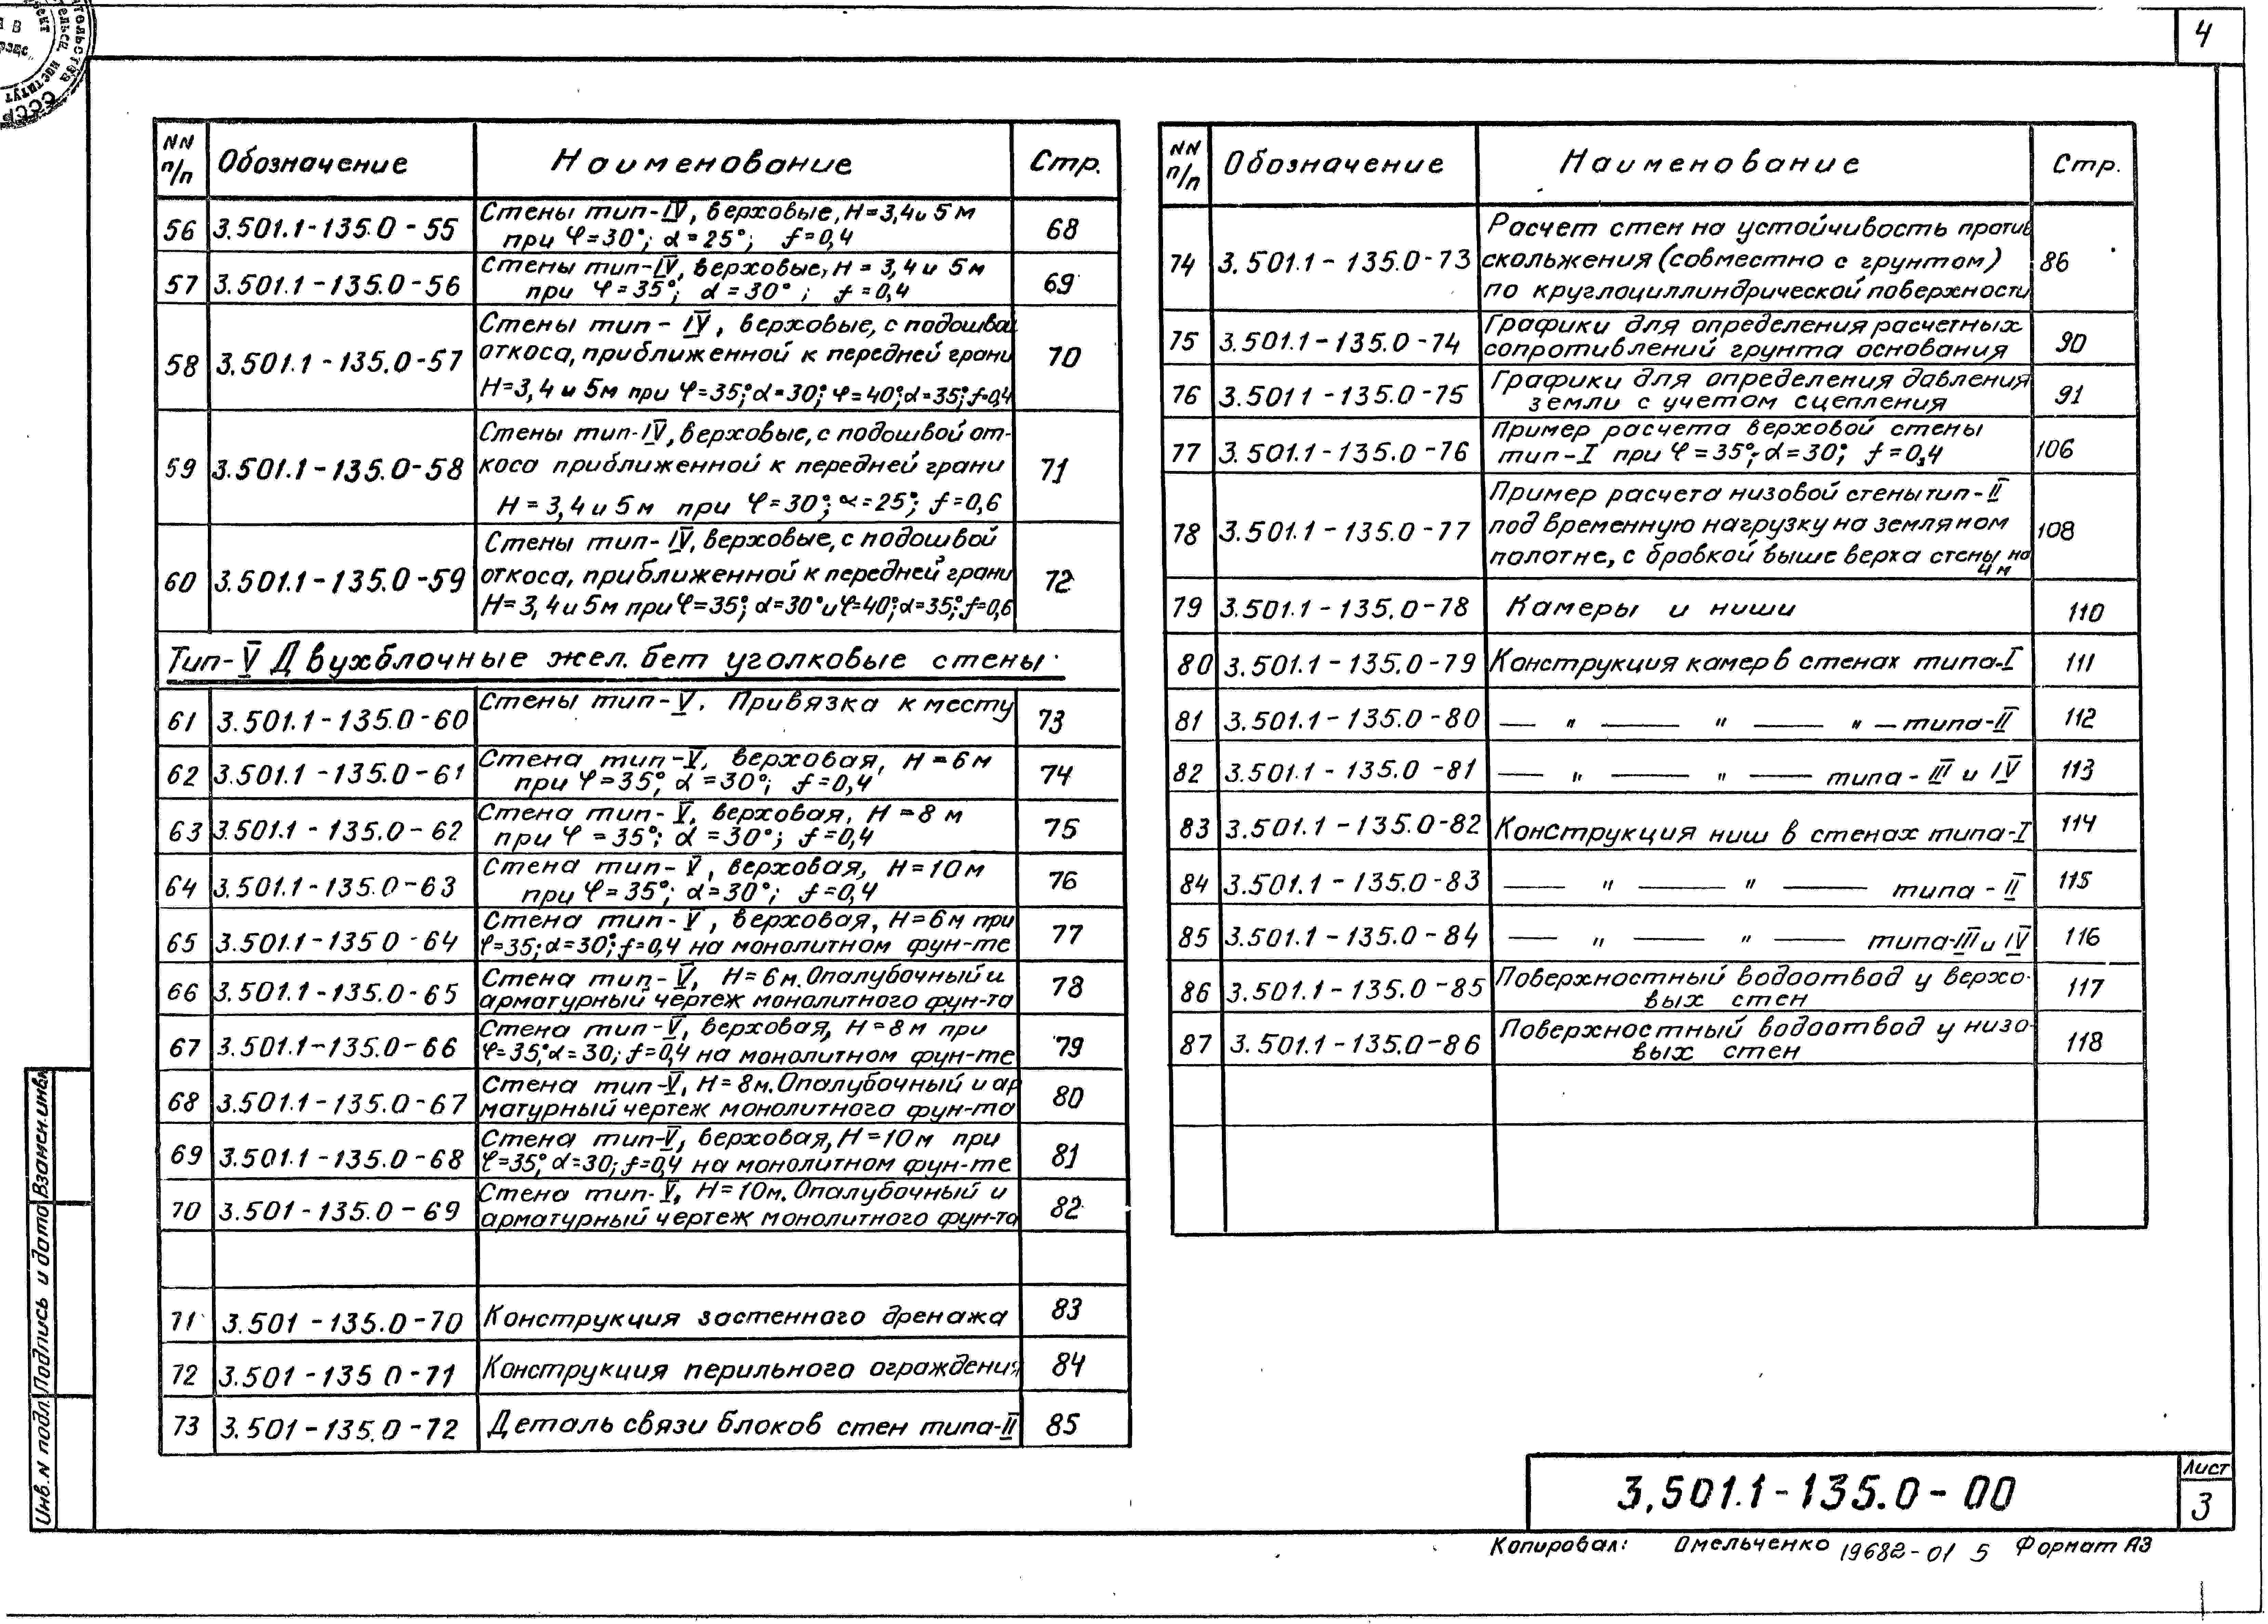 4
NN п/п Обозначение Наименование Стр.
56 3.501.1-135.0-55 Стены тип-IV, верховые, H=3,4 и 5м
при φ=30°; α=25°; f=0,4 68
57 3.501.1-135.0-56 Стены тип-IV, верховые, H=3,4 и 5м
при φ=35°; α=30°; f=0,4 69
58 3.501.1-135.0-57 Стены тип-IV, верховые, с подошвой
откоса, приближенной к передней грани
H=3,4 и 5м при φ=35°; α=30°; φ=40°; α=35°; f=0,4 70
59 3.501.1-135.0-58 Стены тип-IV, верховые, с подошвой от-
коса приближенной к передней грани
H=3,4 и 5м при φ=30°; α=25°; f=0,6 71
60 3.501.1-135.0-59 Стены тип-IV, верховые, с подошвой
откоса, приближенной к передней грани
H=3,4 и 5м при φ=35°; α=30° и φ=40°; α=35°; f=0,6 72
Тип-V Двухблочные жел. бет уголковые стены
61 3.501.1-135.0-60 Стены тип-V. Привязка к месту 73
62 3.501.1-135.0-61 Стена тип-V, верховая, H=6м
при φ=35°, α=30°; f=0,4 74
63 3.501.1-135.0-62 Стена тип-V, верховая, H=8м
при φ=35°; α=30°; f=0,4 75
64 3.501.1-135.0-63 Стена тип-V, верховая, H=10м
при φ=35°; α=30°; f=0,4 76
65 3.501.1-135 0-64 Стена тип-V, верховая, H=6м при
φ=35; α=30°; f=0,4 на монолитном фун-те 77
66 3.501.1-135.0-65 Стена тип-V, H=6м. Опалубочный и
арматурный чертеж монолитного фун-та 78
67 3.501.1-135.0-66 Стена тип-V, верховая, H=8м при
φ=35°, α=30; f=0,4 на монолитном фун-те 79
68 3.501.1-135.0-67 Стена тип-V, H=8м. Опалубочный и ар
матурный чертеж монолитного фун-та 80
69 3.501.1-135.0-68 Стена тип-V, верховая, H=10м при
φ=35°, α=30; f=0,4 на монолитном фун-те 81
70 3.501-135.0-69 Стена тип-V, H=10м. Опалубочный и
арматурный чертеж монолитного фун-та 82
71 3.501-135.0-70 Конструкция застенного дренажа 83
72 3.501-135 0-71 Конструкция перильного ограждения 84
73 3.501-135.0-72 Деталь связи блоков стен типа-II 85
NN п/п Обозначение Наименование Стр.
74 3.501.1-135.0-73 Расчет стен на устойчивость против
скольжения (совместно с грунтом)
по круглоциллиндрической поверхности 86
75 3.501.1-135.0-74 Графики для определения расчетных
сопротивлений грунта основания 90
76 3.501 1-135.0-75 Графики для определения давления
земли с учетом сцепления 91
77 3.501.1-135.0-76 Пример расчета верховой стены
тип-I при φ=35°; α=30°; f=0,4 106
78 3.501.1-135.0-77 Пример расчета низовой стены тип-II
под временную нагрузку на земляном
полотне, с бровкой выше верха стены на
4м 108
79 3.501.1-135.0-78 Камеры и ниши 110
80 3.501.1-135.0-79 Конструкция камер в стенах типа-I 111
81 3.501.1-135.0-80 — " — " — " — типа-II 112
82 3.501.1-135.0-81 — " — " — типа-III и IV 113
83 3.501.1-135.0-82 Конструкция ниш в стенах типа-I 114
84 3.501.1-135.0-83 — " — " — типа-II 115
85 3.501.1-135.0-84 — " — " — типа-III и IV 116
86 3.501.1-135.0-85 Поверхностный водоотвод у верхо-
вых стен 117
87 3.501.1-135.0-86 Поверхностный водоотвод у низо-
вых стен 118
Инв.N подл. Подпись и дата Взамен.инв.N
3.501.1-135.0-00
Лист
3
Копировал: Омельченко 19682-01 5 Формат А3
СССР